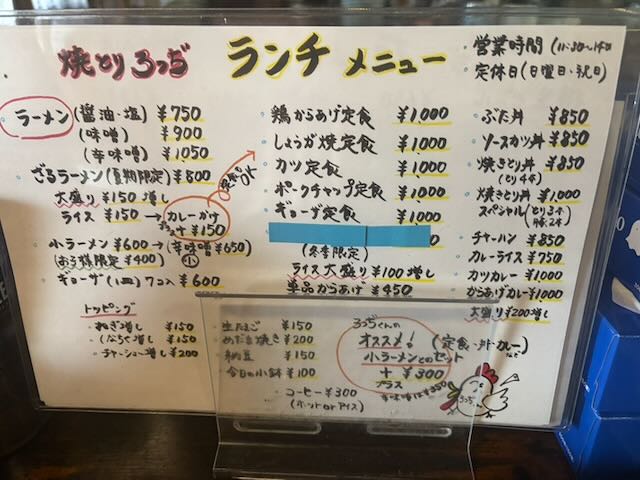 焼とり ろっぢ
ランチ メニュー
営業時間 (11:30〜14:0
定休日(日曜日・祝日)
ラーメン (醤油・塩) ¥750
(味噌) ¥900
(辛味噌) ¥1050
ざるラーメン(夏期限定) ¥800
大盛り ¥150増し
ライス ¥150 → カレーかけ
+¥150
小ラーメン ¥600 → 辛味噌 ¥650)
小
(お子様限定 ¥400)
ギョーザ(一皿)7コ入 ¥600
トッピング
ねぎ増し ¥150
くんちく増し ¥150
チャーシュー増し ¥200
鶏からあげ定食 ¥1,000
しょうが焼定食 ¥1,000
カツ定食 ¥1,000
ポークチャップ定食 ¥1,000
ギョーザ定食 ¥1,000
(冬季限定)
ライス大盛り ¥100増し
単品からあげ ¥450
ぶた丼 ¥850
ソースカツ丼 ¥850
焼きとり丼 ¥850
(とり4本)
焼きとり丼 ¥1,000
スペシャル
チャーハン ¥850
カレーライス ¥750
カツカレー ¥1000
からあげカレー ¥1000
大盛り ¥200増し
生たまご ¥150
めだま焼き ¥200
納豆 ¥150
今日の小鉢 ¥100
コーヒー ¥300
(ホット or アイス)
ろっぢくんの
オススメ! (定食・丼・カレー)
小ラーメンとのセット
+ ¥300
プラス
辛味噌は¥350
ろっぢ